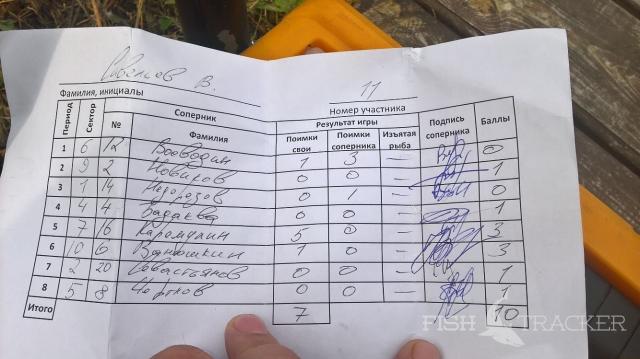 В.
11
Фамилия, инициалы
Номер участника
Период Сектор Соперник Результат игры Подпись соперника Баллы
№ Фамилия Поимки свои Поимки соперника Изъятая рыба
1 6 12 Воеводин 1 3 — 0
2 9 2 Новиков 0 0 — 1
3 1 14 0 1 — 0
4 4 4 0 0 — 1
5 7 16 5 0 — 3
6 10 6 Ванюшкин 1 0 — 3
7 2 20 Севастьянов 0 0 — 1
8 5 8 Чертков 0 0 — 1
Итого 7 10
FISH TRACKER